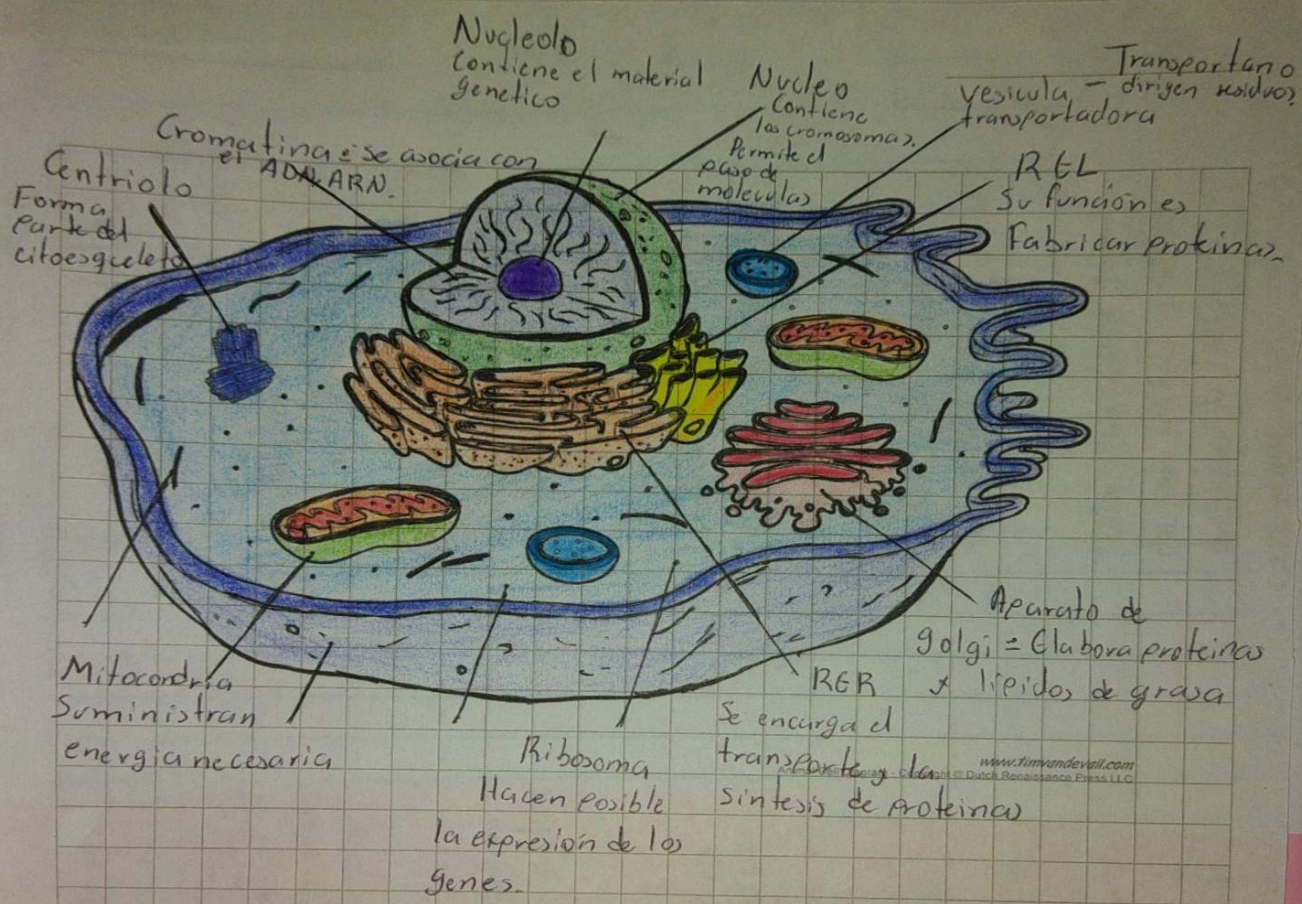 Nucleolo
Contiene el material
genetico
Nucleo
Contiene
los cromosomas.
Permite el
paso de
moleculas
Transportan o
dirigen residuos
vesicula -
transportadora
Cromatina = se asocia con
el ADN, ARN.
Centriolo
Forma
parte del
citoesqueleto
REL
Su función es
Fabricar proteinas.
Aparato de
golgi = Elabora proteinas
y lípidos de grasa
Mitocondria
Suministran
energia necesaria
RER
Se encarga el
transporte y la
sintesis de proteinas
Ribosoma
Hacen posible
la expresión de los
genes.
www.timvandevall.com
Dutch Renaissance Press LLC